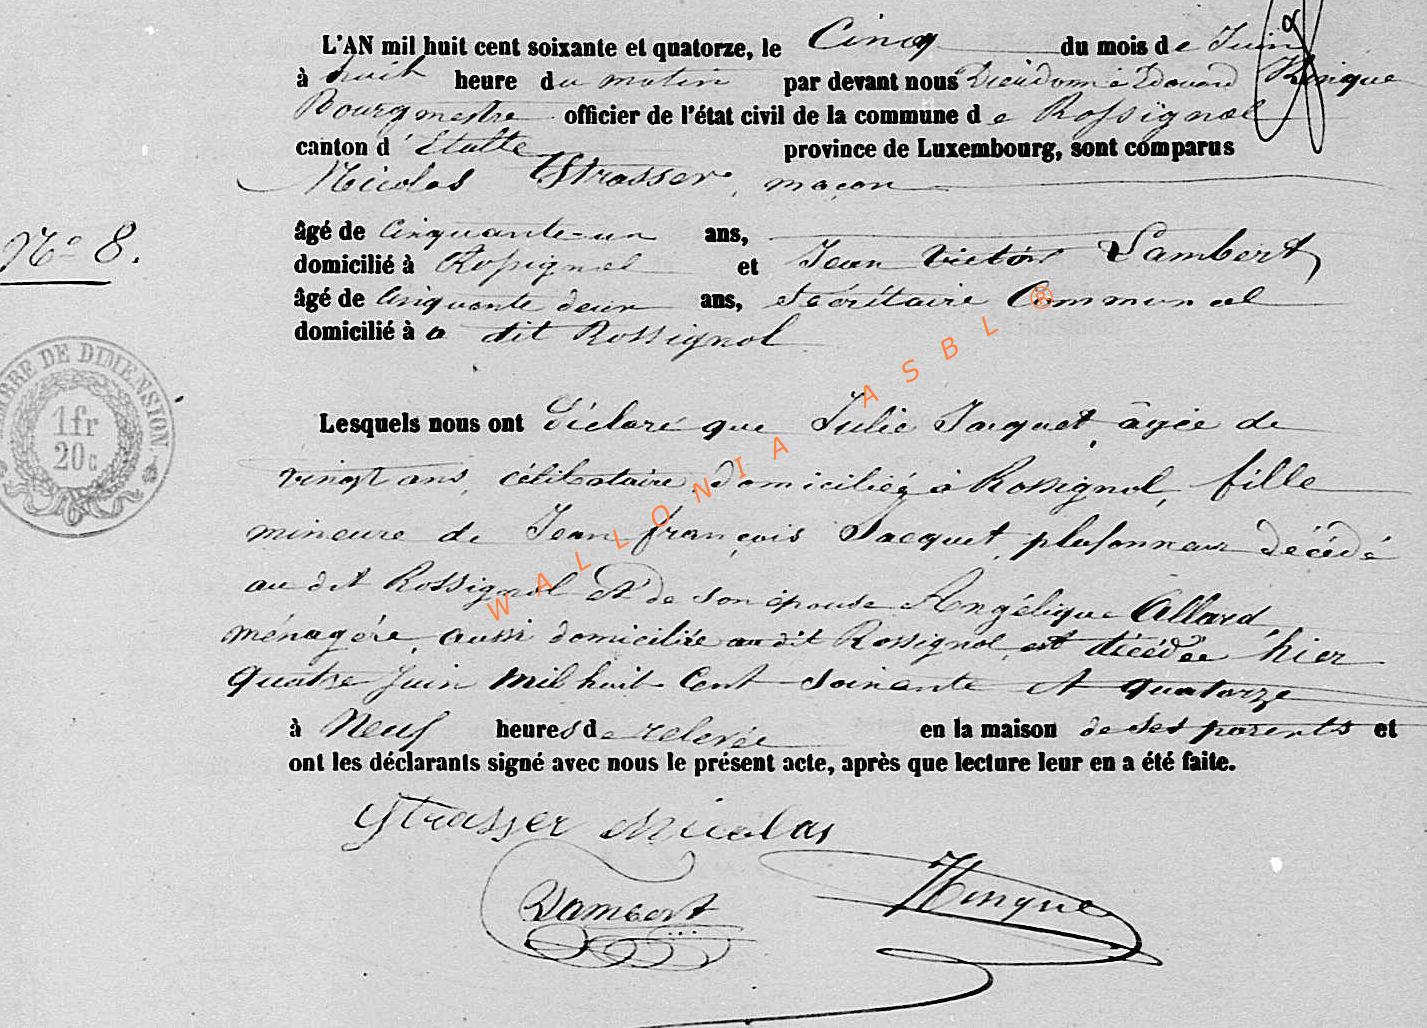 L'AN mil huit cent soixante et quatorze, le Cinq du mois de Juin
à huit heure du matin par devant nous Dieudonné Edouard Hinque
Bourgmestre officier de l'état civil de la commune de Rossignol
canton d'Etalle province de Luxembourg, sont comparus
Nicolas Strasser, maçon
âgé de Cinquante-un ans,
domicilié à Rossignol et Jean Victor Lambert
âgé de Cinquante deux ans, Secrétaire Communal
domicilié à a dit Rossignol
N° 8.
TIMBRE DE DIMENSION
1fr
20c
Lesquels nous ont déclaré que Julie Jacquet, âgée de
vingt ans, célibataire, domiciliée à Rossignol, fille
mineure de Jean françois Jacquet, plafonneur décédé
au dit Rossignol et de son épouse Angélique Allard,
ménagère, aussi domiciliée au dit Rossignol, est décédée hier
quatre Juin mil huit Cent soixante et quatorze
à Neuf heures de relevée en la maison de ses parents et
ont les déclarants signé avec nous le présent acte, après que lecture leur en a été faite.
Strasser Nicolas
Lambert Hinque
WALLONIA ASBL ®